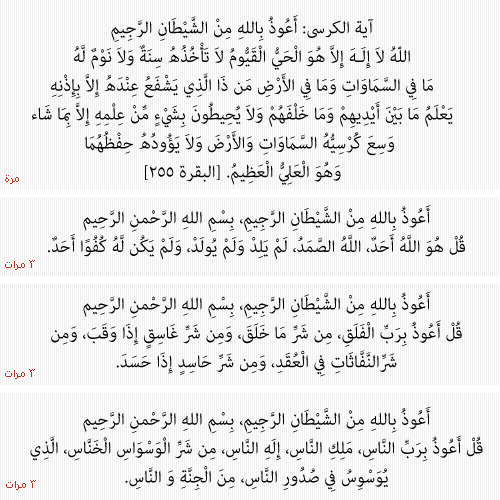 آية الكرسى: أَعُوذُ بِاللهِ مِنْ الشَّيْطَانِ الرَّجِيمِ
اللّهُ لاَ إِلَـهَ إِلاَّ هُوَ الْحَيُّ الْقَيُّومُ لاَ تَأْخُذُهُ سِنَةٌ وَلاَ نَوْمٌ لَّهُ
مَا فِي السَّمَاوَاتِ وَمَا فِي الأَرْضِ مَن ذَا الَّذِي يَشْفَعُ عِنْدَهُ إِلاَّ بِإِذْنِهِ
يَعْلَمُ مَا بَيْنَ أَيْدِيهِمْ وَمَا خَلْفَهُمْ وَلاَ يُحِيطُونَ بِشَيْءٍ مِّنْ عِلْمِهِ إِلاَّ بِمَا شَاء
وَسِعَ كُرْسِيُّهُ السَّمَاوَاتِ وَالأَرْضَ وَلاَ يَؤُودُهُ حِفْظُهُمَا
وَهُوَ الْعَلِيُّ الْعَظِيمُ. [البقرة ٢٥٥]
مرة
أَعُوذُ بِاللهِ مِنْ الشَّيْطَانِ الرَّجِيمِ، بِسْمِ اللهِ الرَّحْمنِ الرَّحِيم
قُلْ هُوَ اللَّهُ أَحَدٌ، اللَّهُ الصَّمَدُ، لَمْ يَلِدْ وَلَمْ يُولَدْ، وَلَمْ يَكُن لَّهُ كُفُوًا أَحَدٌ.
٣ مرات
أَعُوذُ بِاللهِ مِنْ الشَّيْطَانِ الرَّجِيمِ، بِسْمِ اللهِ الرَّحْمنِ الرَّحِيم
قُلْ أَعُوذُ بِرَبِّ الْفَلَقِ، مِن شَرِّ مَا خَلَقَ، وَمِن شَرِّ غَاسِقٍ إِذَا وَقَبَ، وَمِن
شَرِّالنَّفَّاثَاتِ فِي الْعُقَدِ، وَمِن شَرِّ حَاسِدٍ إِذَا حَسَدَ.
٣ مرات
أَعُوذُ بِاللهِ مِنْ الشَّيْطَانِ الرَّجِيمِ، بِسْمِ اللهِ الرَّحْمنِ الرَّحِيم
قُلْ أَعُوذُ بِرَبِّ النَّاسِ، مَلِكِ النَّاسِ، إِلَهِ النَّاسِ، مِن شَرِّ الْوَسْوَاسِ الْخَنَّاسِ، الَّذِي
يُوَسْوِسُ فِي صُدُورِ النَّاسِ، مِنَ الْجِنَّةِ وَ النَّاسِ.
٣ مرات